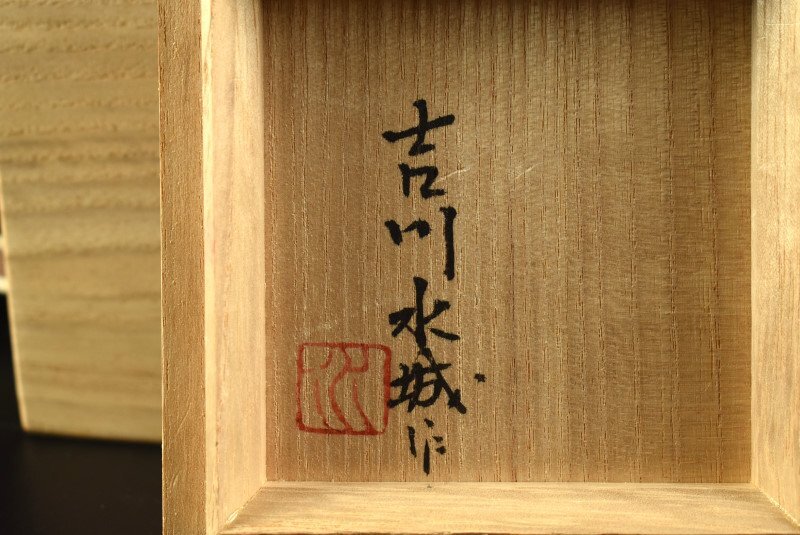 吉川水城作